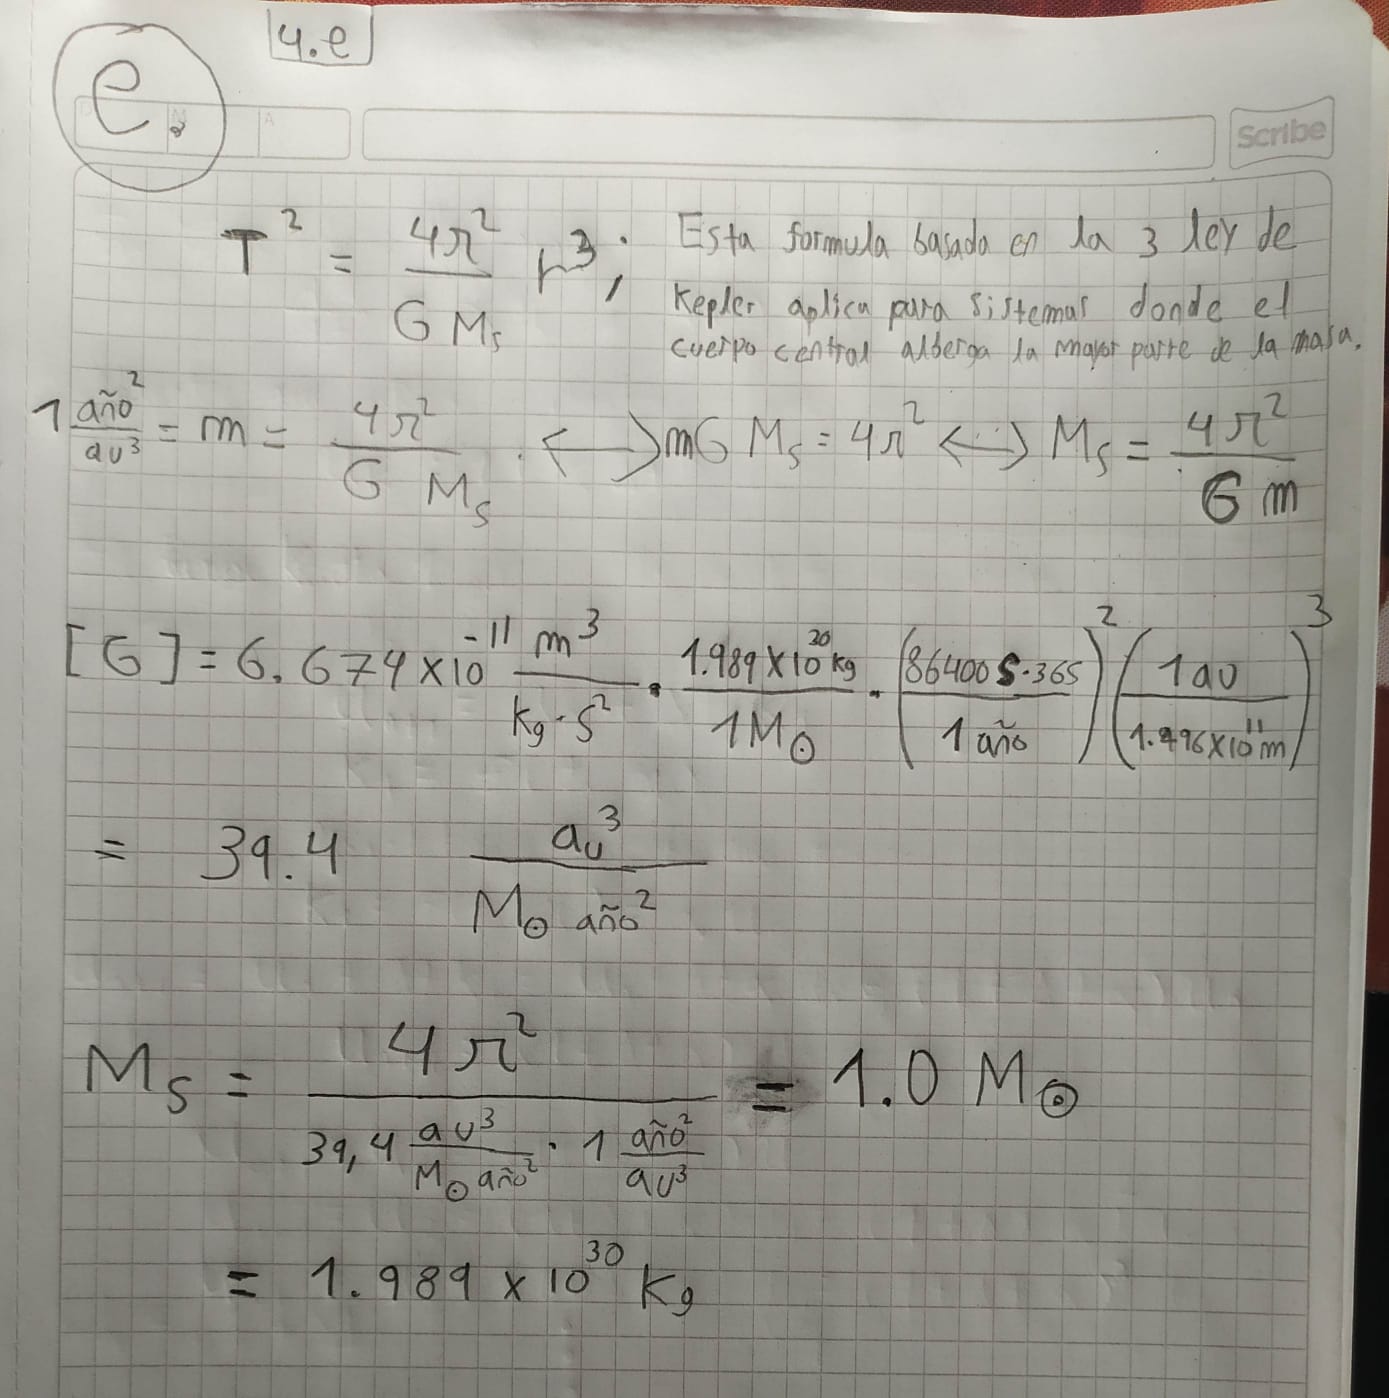 4.e
e.
A
Scribe
T² = 4π² / G Mₛ r³; Esta formula basada en la 3 ley de
Kepler aplica para sistemas donde el
cuerpo central alberga la mayor parte de la masa.
1 año²/au³ = m = 4π² / G Mₛ . ⟷ mG Mₛ = 4π² ⟷ Mₛ = 4π² / G m
[G] = 6.674×10⁻¹¹ m³/kg·s² · 1.989×10³⁰kg/1M⊙ · (86400s·365/1 año)² (1au/1.496×10¹¹m)³
= 39.4 au³/M⊙ año²
Mₛ = 4π² / 39,4 au³/M⊙ año² · 1 año²/au³ = 1.0 M⊙
= 1.989 x 10³⁰ Kg